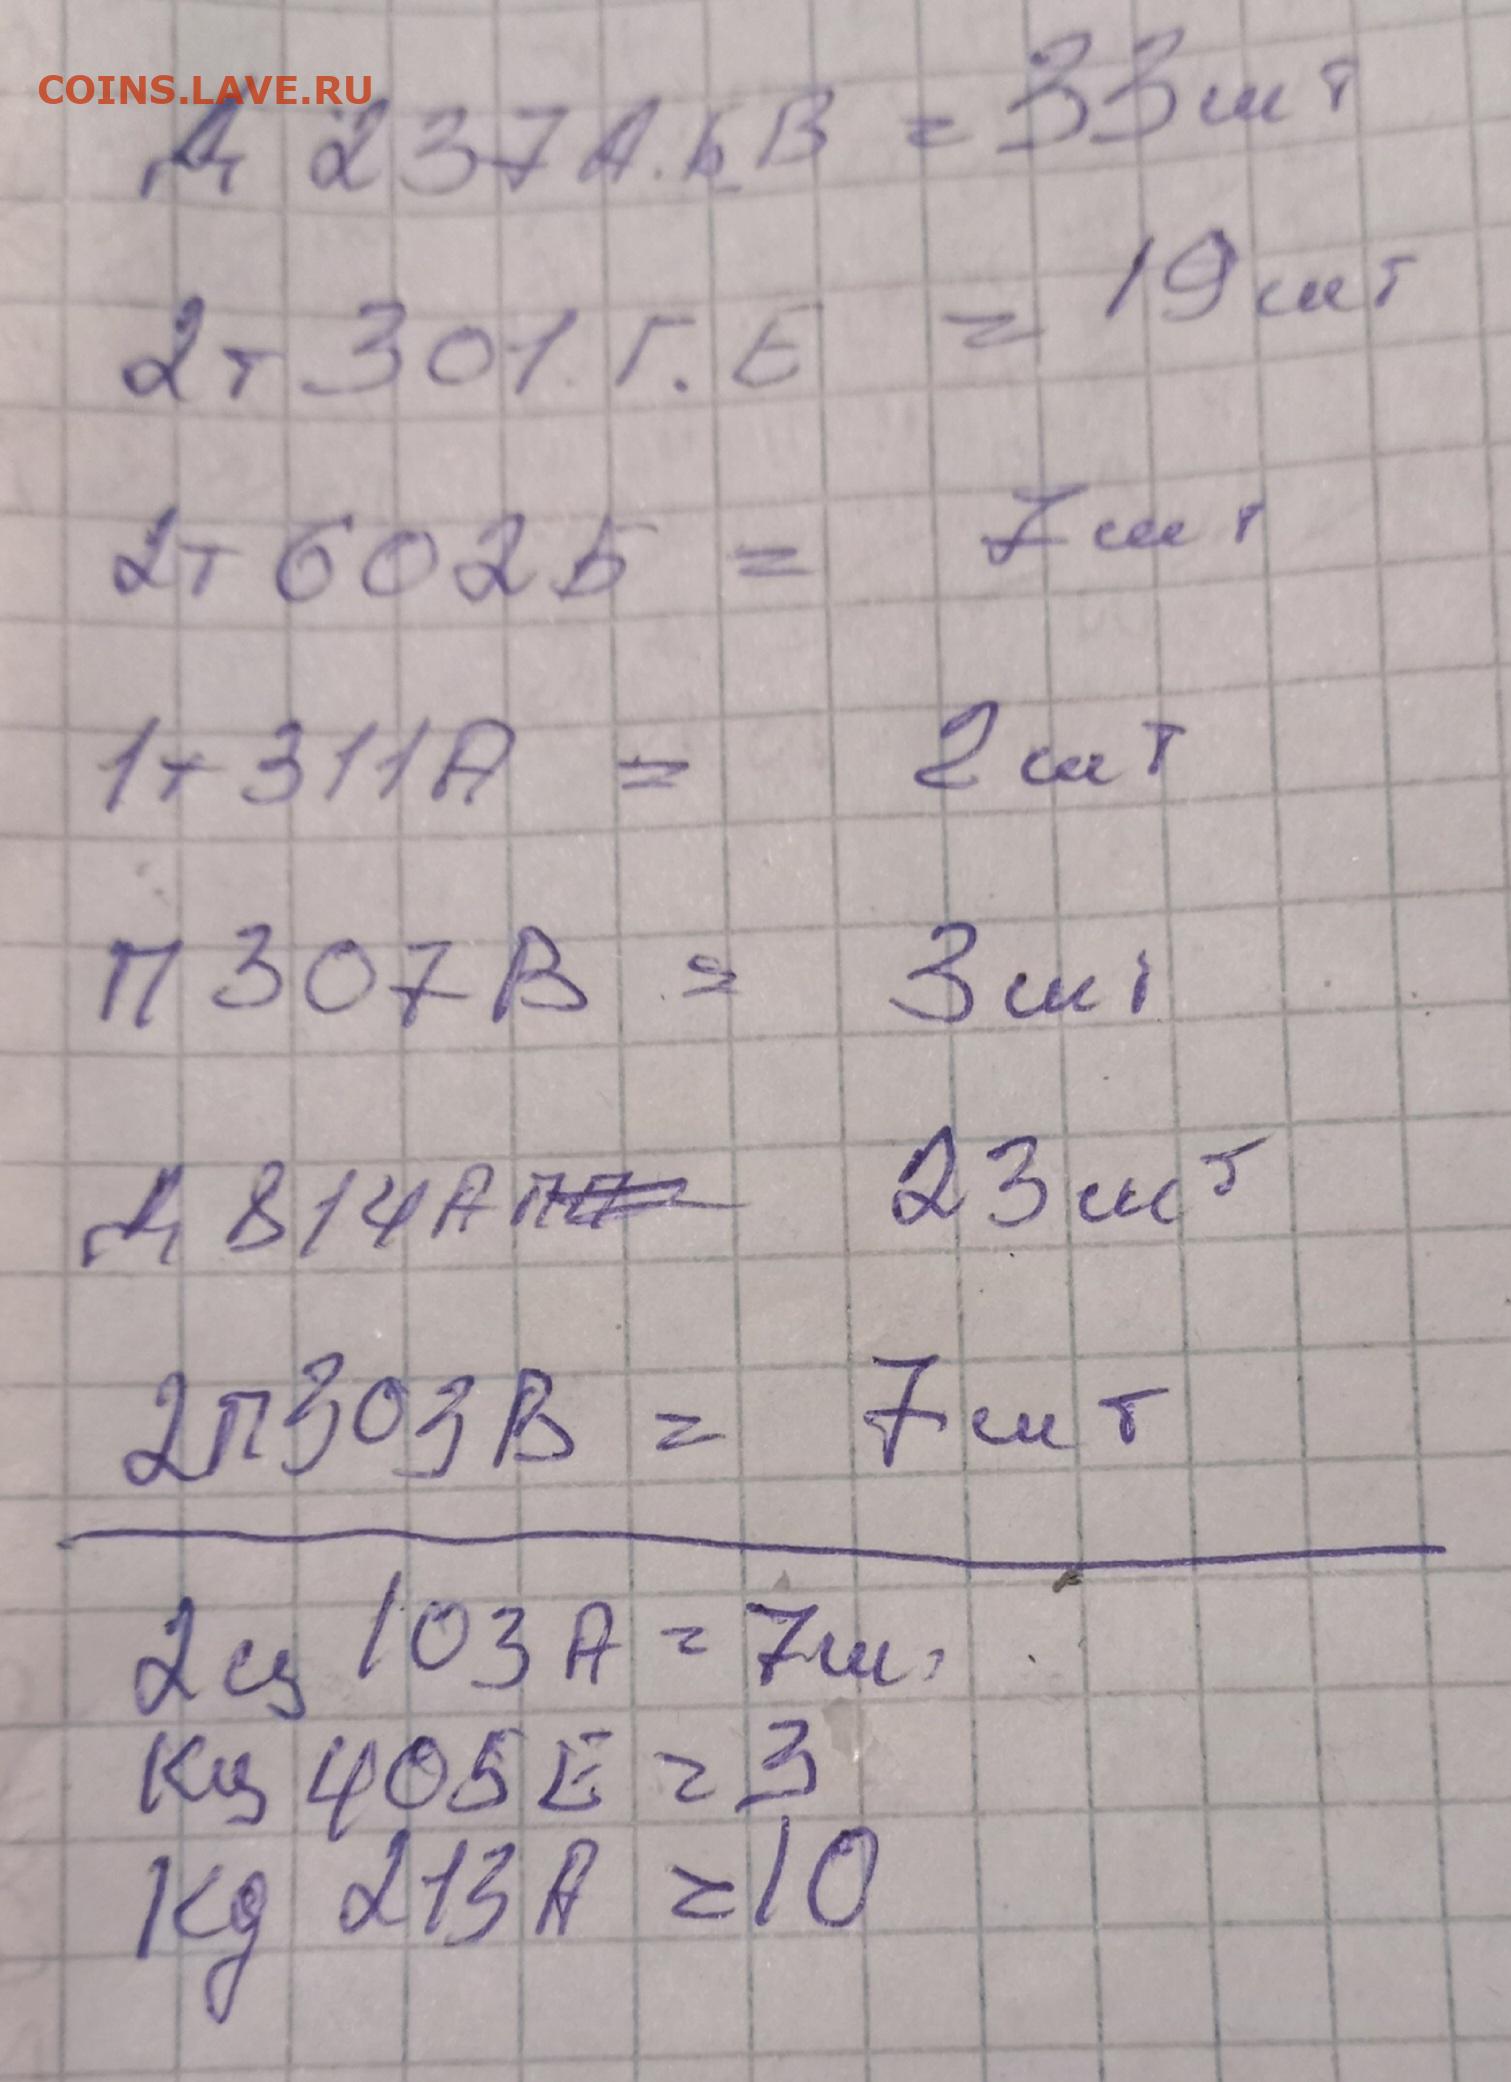 COINS.LAVE.RU
Д 237А.Б.В = 33шт
2т 301.Г.Е = 19шт
2т 602Б = 7шт
1т 311А = 2шт
П 307В = 3шт
Д 814А 23шт
2П303В = 7шт
2ц 103А = 7ш.
Кц 405Е = 3
Кд 213А = 10